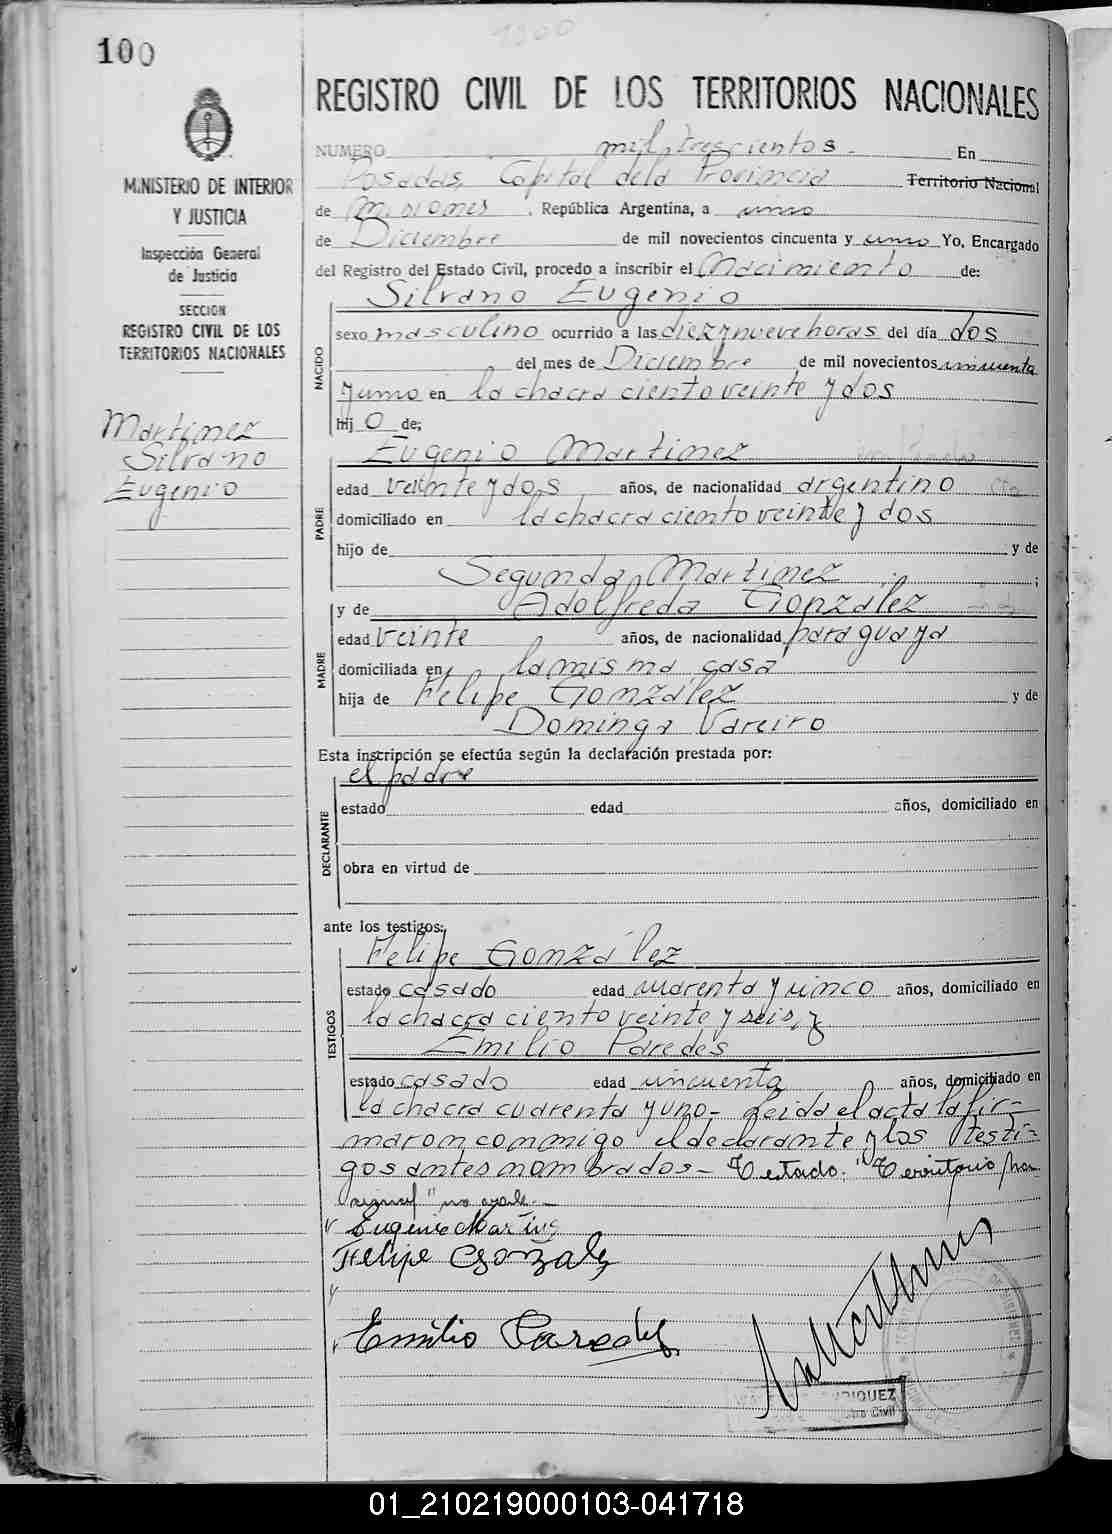 1300
100
REGISTRO CIVIL DE LOS TERRITORIOS NACIONALES
MINISTERIO DE INTERIOR
Y JUSTICIA
Inspección General
de Justicia
SECCION
REGISTRO CIVIL DE LOS
TERRITORIOS NACIONALES
Martinez
Silvano
Eugenio
NUMERO mil trescientos. En
Posadas, Capital dela Provincia Territorio Nacional
de Misiones, República Argentina, a cinco
de Diciembre de mil novecientos cincuenta y uno Yo, Encargado
del Registro del Estado Civil, procedo a inscribir el Nacimiento de:
Silvano Eugenio
NACIDO
sexo masculino ocurrido a las diez y nueve horas del día dos
del mes de Diciembre de mil novecientos cincuenta
y uno en la chacra ciento veinte y dos
hij o de;
Eugenio Martinez
PADRE
edad veinte y dos años, de nacionalidad argentino
domiciliado en la chacra ciento veinte y dos
hijo de y de
Segunda Martinez ;
y de Adolfreda González
MADRE
edad veinte años, de nacionalidad paraguaya
domiciliada en la misma casa
hija de Felipe González y de
Dominga Vareiro
Esta inscripción se efectúa según la declaración prestada por:
el padre
DECLARANTE
estado edad años, domiciliado en
obra en virtud de
ante los testigos:
Felipe González
TESTIGOS
estado casado edad cuarenta y cinco años, domiciliado en
la chacra ciento veinte y seis, y
Emilio Paredes
estado casado edad cincuenta años, domiciliado en
la chacra cuarenta y uno- Leida el acta la fir-
maron conmigo el declarante y los testi-
gos antes nombrados- Testado: "Territorio Na-
cional" no vale.-
Eugenio Martinez
Felipe Gonzalez
Emilio Paredes
RIQUEZ
Civil
01_210219000103-041718